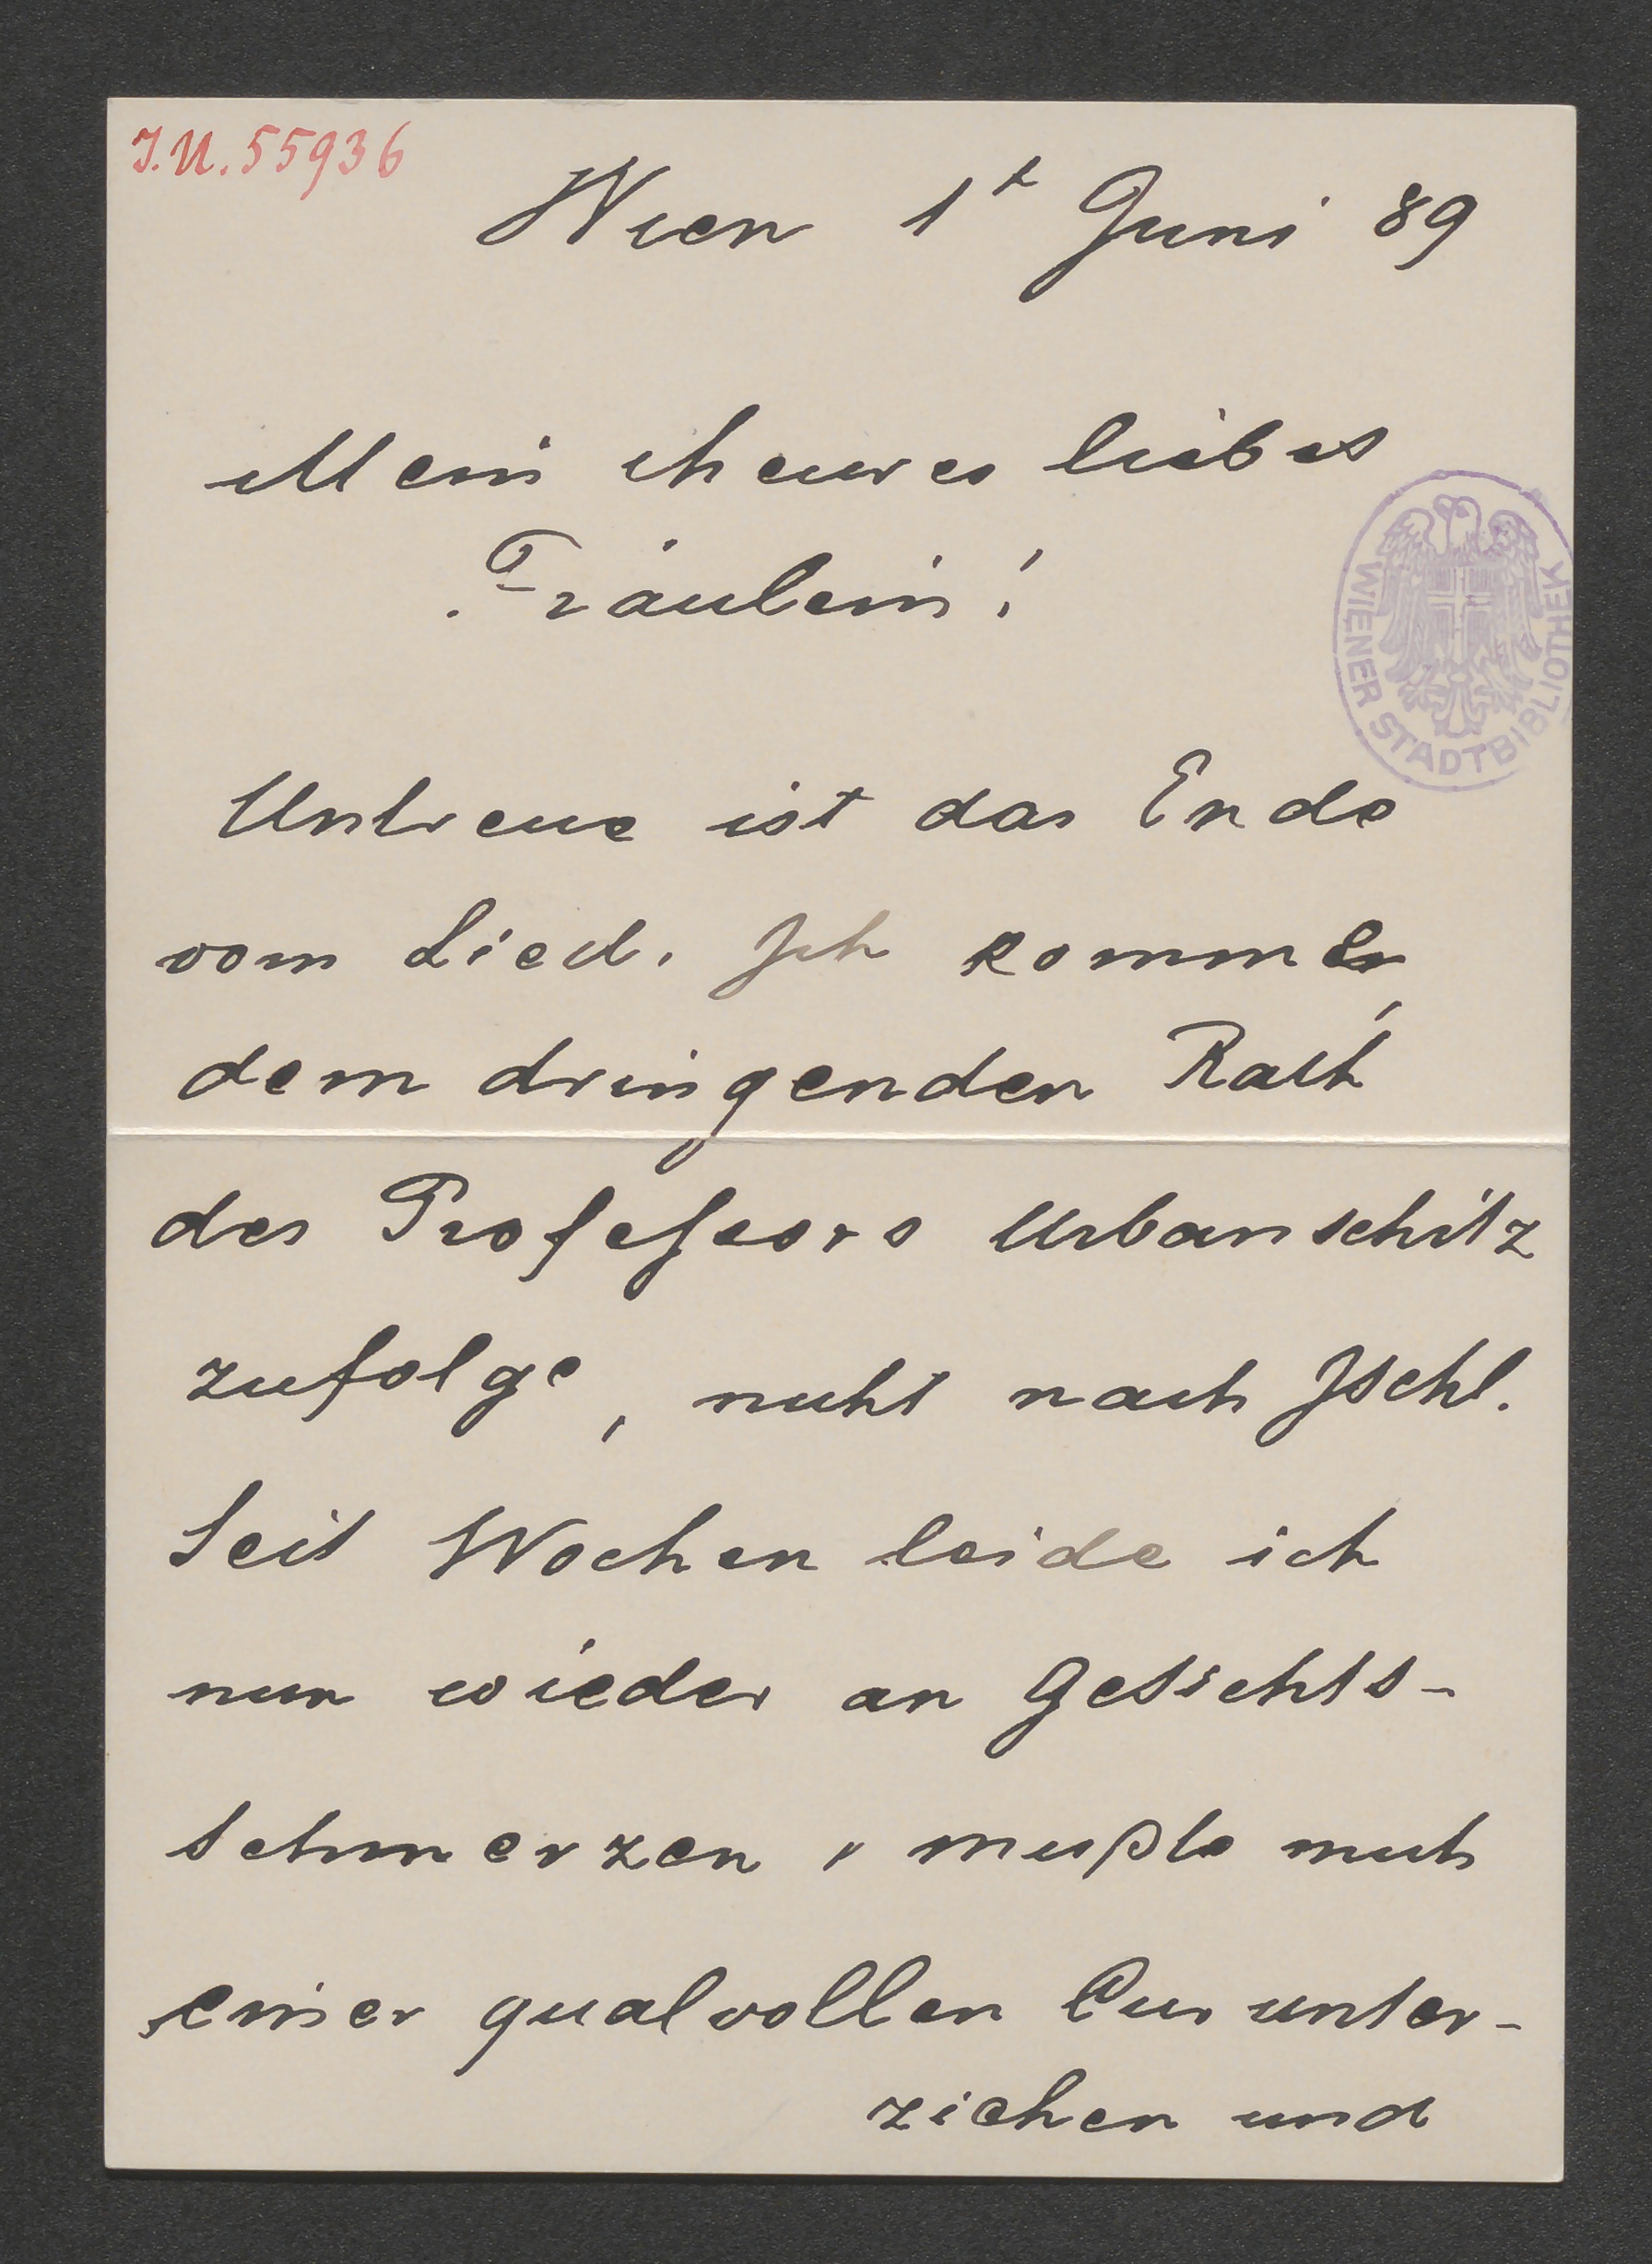 J.N. 55936
Wien 1t Juni 89
Mein theures liebes
Fräulein!
WIENER STADTBIBLIOTHEK
Untreue ist das Ende
vom Lied. Ich komme,
dem dringenden Rath
des Professors Urbanschitz
zufolge, nicht nach Ischl.
Seit Wochen leide ich
nun wieder an Gesichts-
schmerzen u mußte mich
einer qualvollen Cur unter-
ziehen und